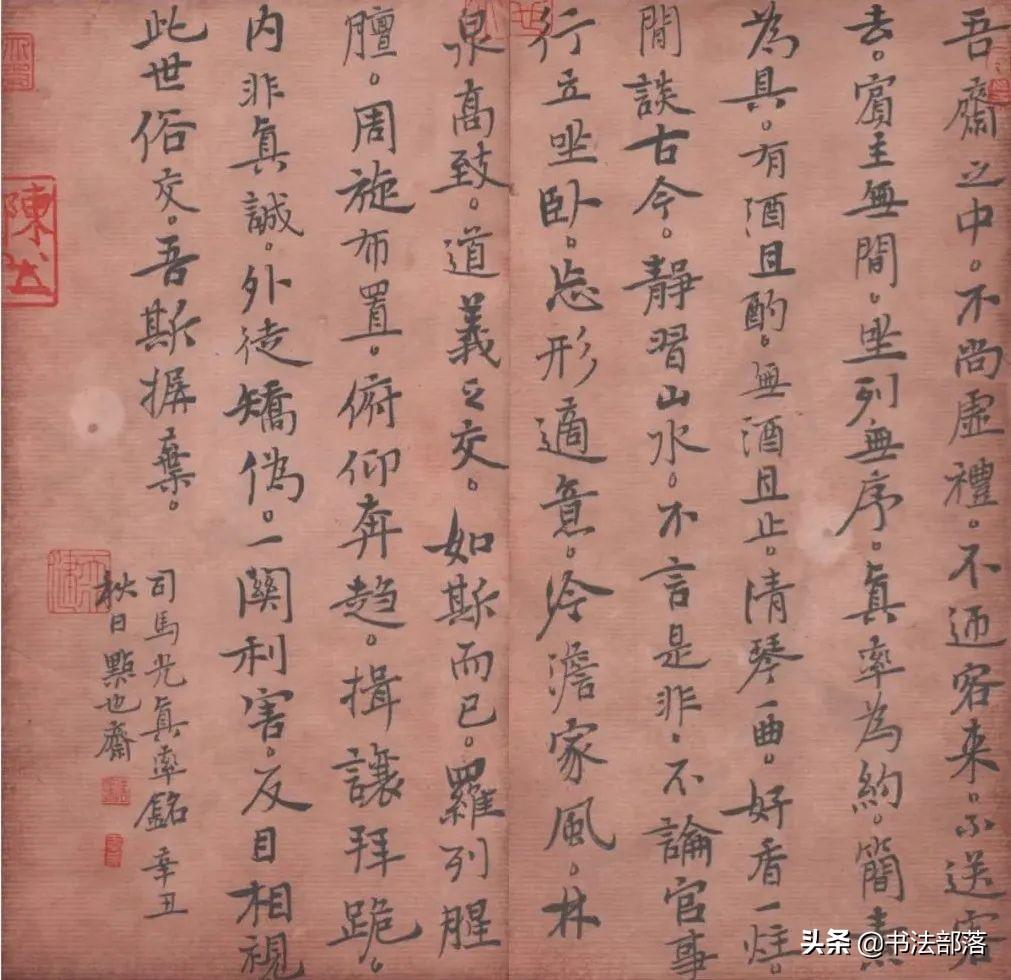 吾齋之中。不尚虛禮。不迎客来。不送客
去。賓主無間。坐列無序。真率為約。簡素
為具。有酒且酌。無酒且止。清琴一曲。好香一炷。
閒談古今。靜習山水。不言是非。不論官事
行立坐卧。忘形適意。冷澹家風。林
泉高致。道義之交。如斯而已。羅列腥
膻。周旋布置。俯仰奔趨。揖讓拜跪。
内非真誠。外徒矯偽。一關利害。反目相視
此世俗交。吾斯摒棄。
司馬光真率銘 辛丑
秋日點也齋
頭条 @书法部落